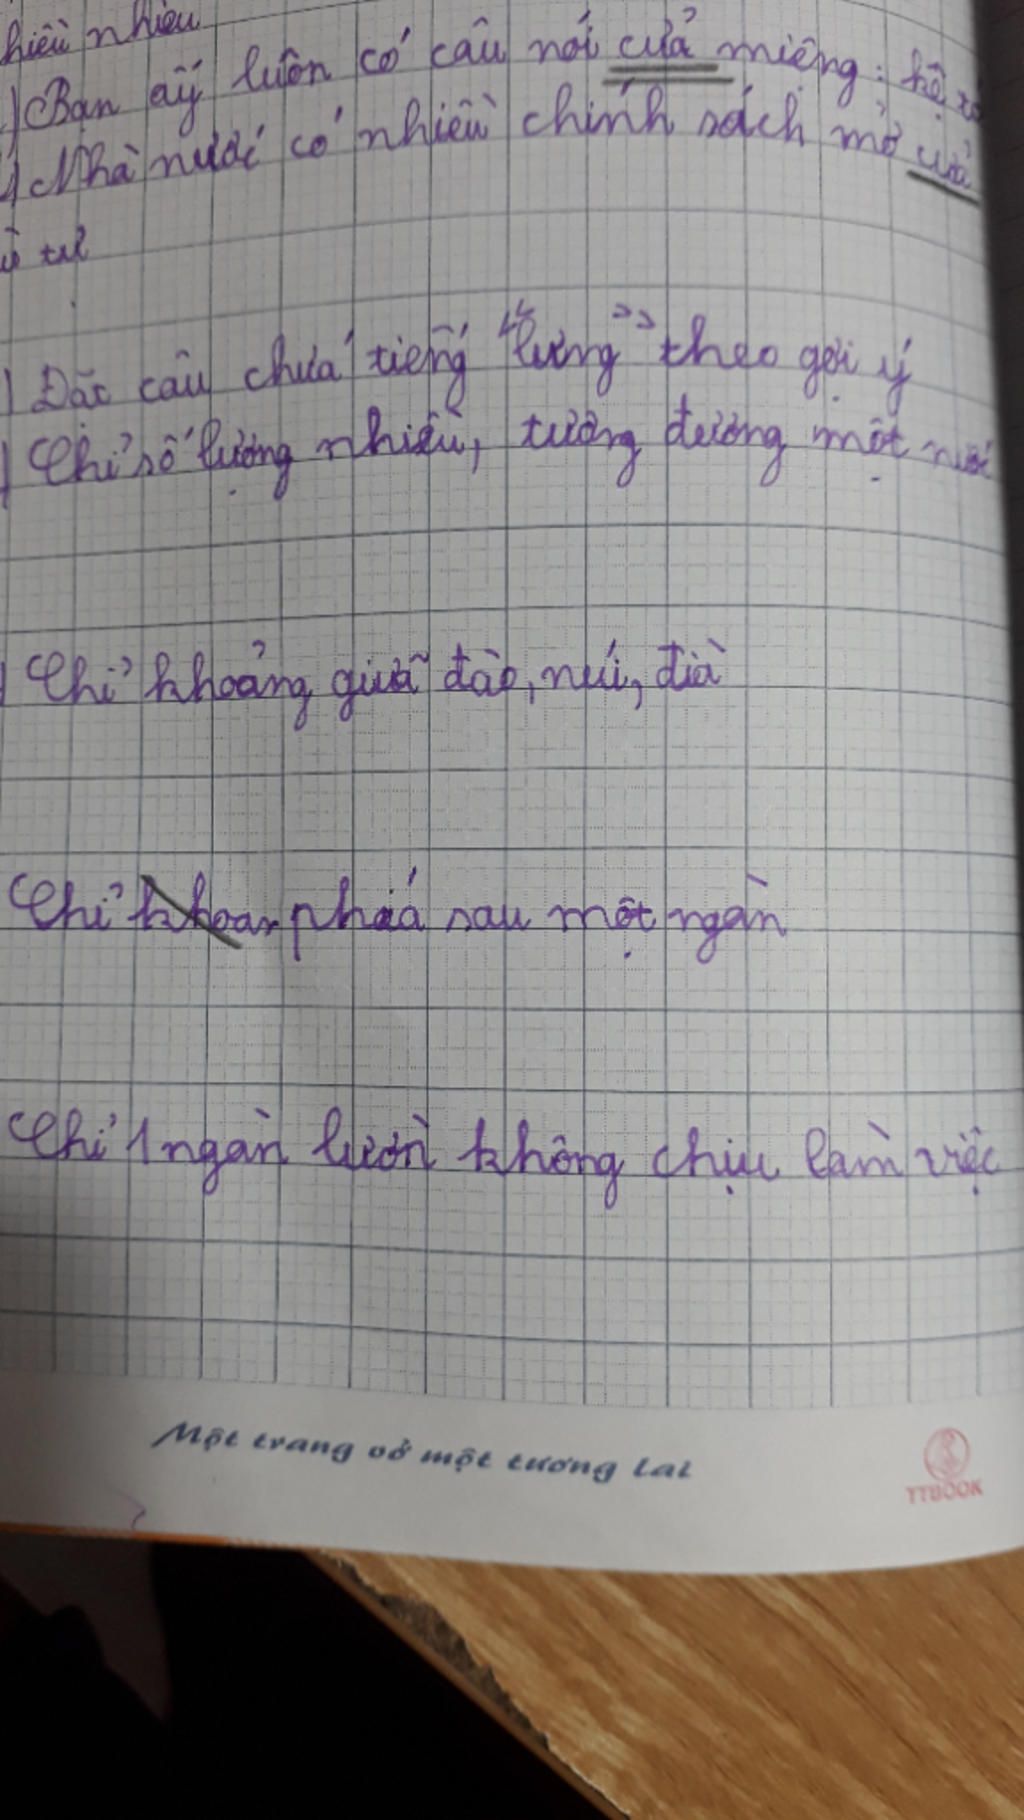 nhiêu
Bạn ấy luôn có câu nói cửa miệng: kệ
Nhà nước có nhiều chính sách mở cửa
tư
Đặc câu chứa tiếng "lưng" theo gợi ý
Chỉ số lượng nhiều, tương đương một
Chỉ khoảng giữa đảo, núi, đià
Chỉ phiá sau một ngàn
Chỉ 1 ngàn lườn không chịu làm việc
Một trang vở một tương lai
TTBOOK